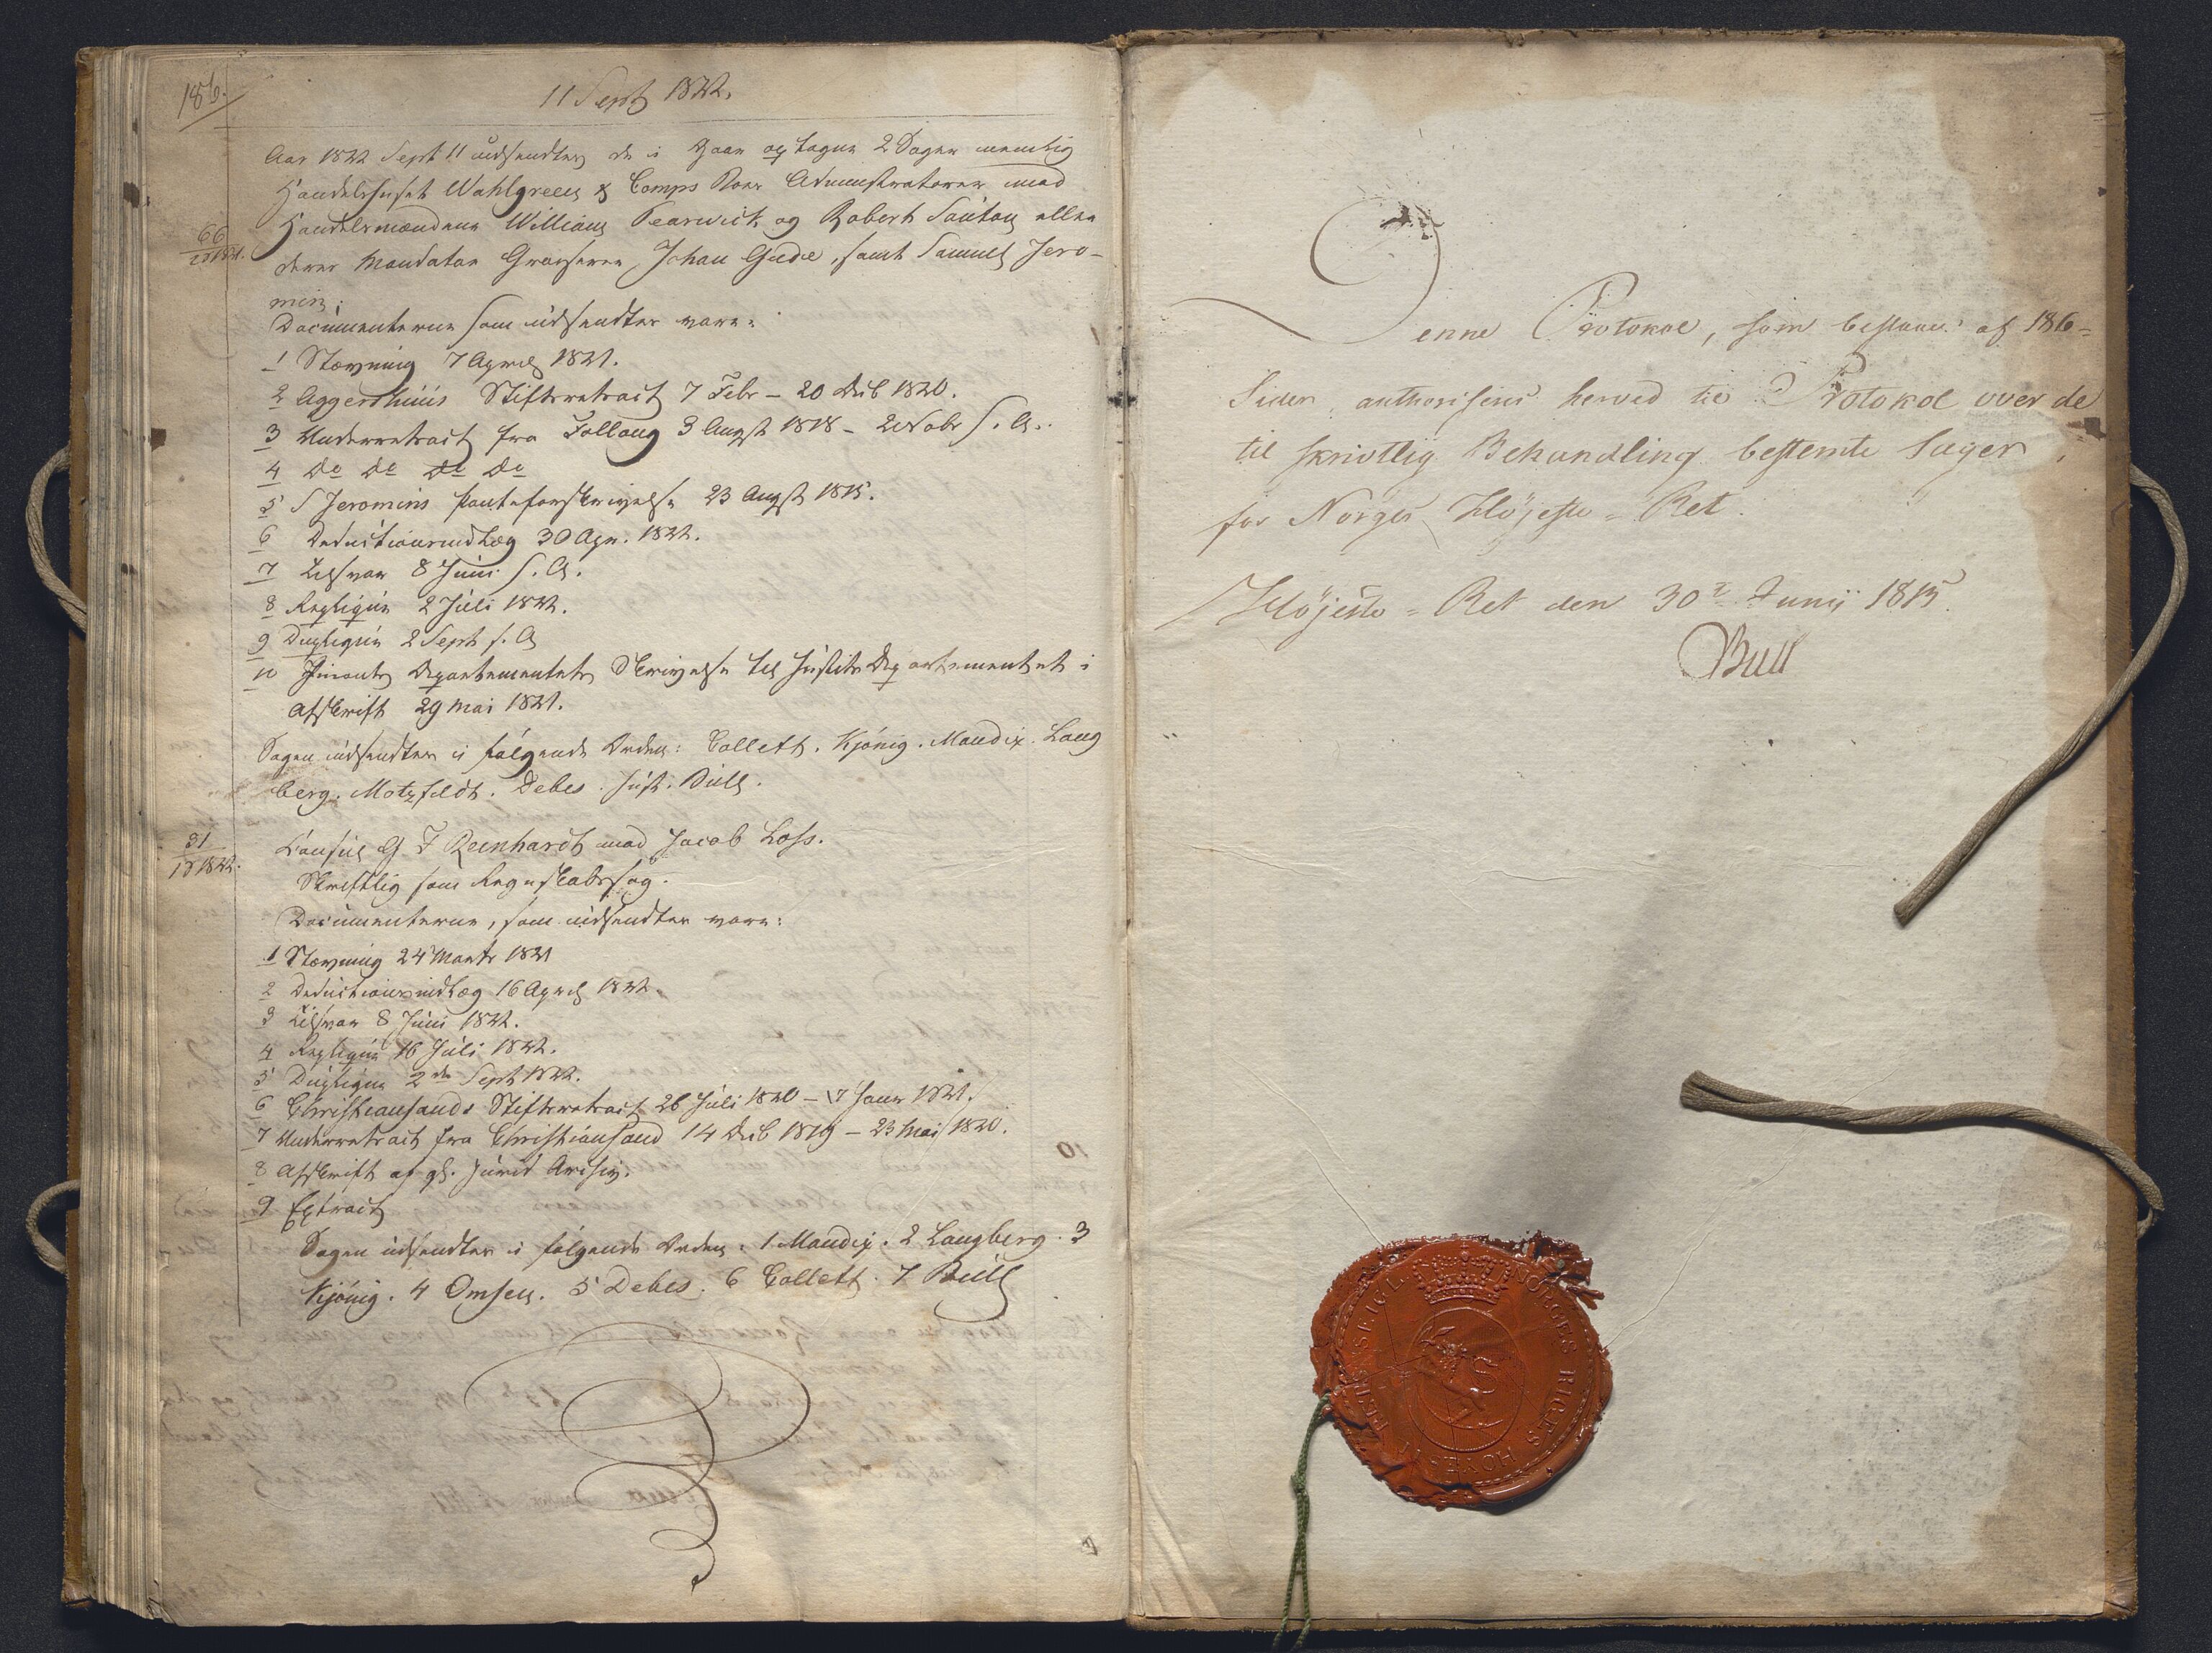 186.
11 Sept 1822.
Aar 1822 Sept 11 udsendtes de i Gaar optagne 2 Sager nemlig
Handelshuset Wahlgreen & Comps Boes Administratorer mod
Handelsmændene William Pearwick og Robert Santon eller
66
deres Mandatar Grosserer Johan Gude, samt Samuel Jero-
min;
Documenterne som udsendtes vare:
1 Stævning 7 April 1821.
2 Aggershuus Stiftsretsact 7 Febr - 20 Decb 1820.
3 Underretsact fra Folloug 3 Augst 1818 - 2 Novbr s. A.
4 Do Do Do Do
5 S Jeromins Panteforskrivelse 23 Augst 1815.
6 Deductionsindlæg 30 Apr. 1822.
7 Tilsvar 8 Juni s. A.
8 Repliqve 2 Juli 1822.
9 Dupliqve 2 Sept s. A
10 Finants Departementets Skrivelse til Justits Departementet i
Afskrift 29 Mai 1821.
Sagen udsendtes i følgende Orden: Collett. Kjønig. Mandix. Lang
berg. Motzfeldt. Debes. Just. Bull.
31
1822.
Consul G F Reinhardt mod Jacob Loss.
Skriftlig som Regnskabssag.
Documenterne, som udsendtes vare:
1 Stævning 24 Marts 1821
2 Deductionsindlæg 16 April 1822.
3 Tilsvar 8 Juni 1822.
4 Repliqve 16 Juli 1822.
5 Dupliqve 2den Sept 1822.
6 Christiansands Stiftsretsact 26 Juli 1820 - 17 Janr 1821.
7 Underretsact fra Christiansand 14 Decb 1819 - 23 Mai 1820.
8 Afskrift af
9 Extract
Sagen udsendtes i følgende Orden: 1 Mandix. 2 Langberg. 3
Kjønig. 4 Omsen. 5 Debes. 6 Collett. 7 Bull
Denne Protokol, som bestaaer af 186=
Sider, authoriseres herved til Protokol over de
til skrivtlig Behandling bestemte Sager
for Norges Höjeste=Ret.
Höjeste=Ret den 30te Junij 1815.
Bull
NORGES RIGES HOYESTE RETS SEIGL